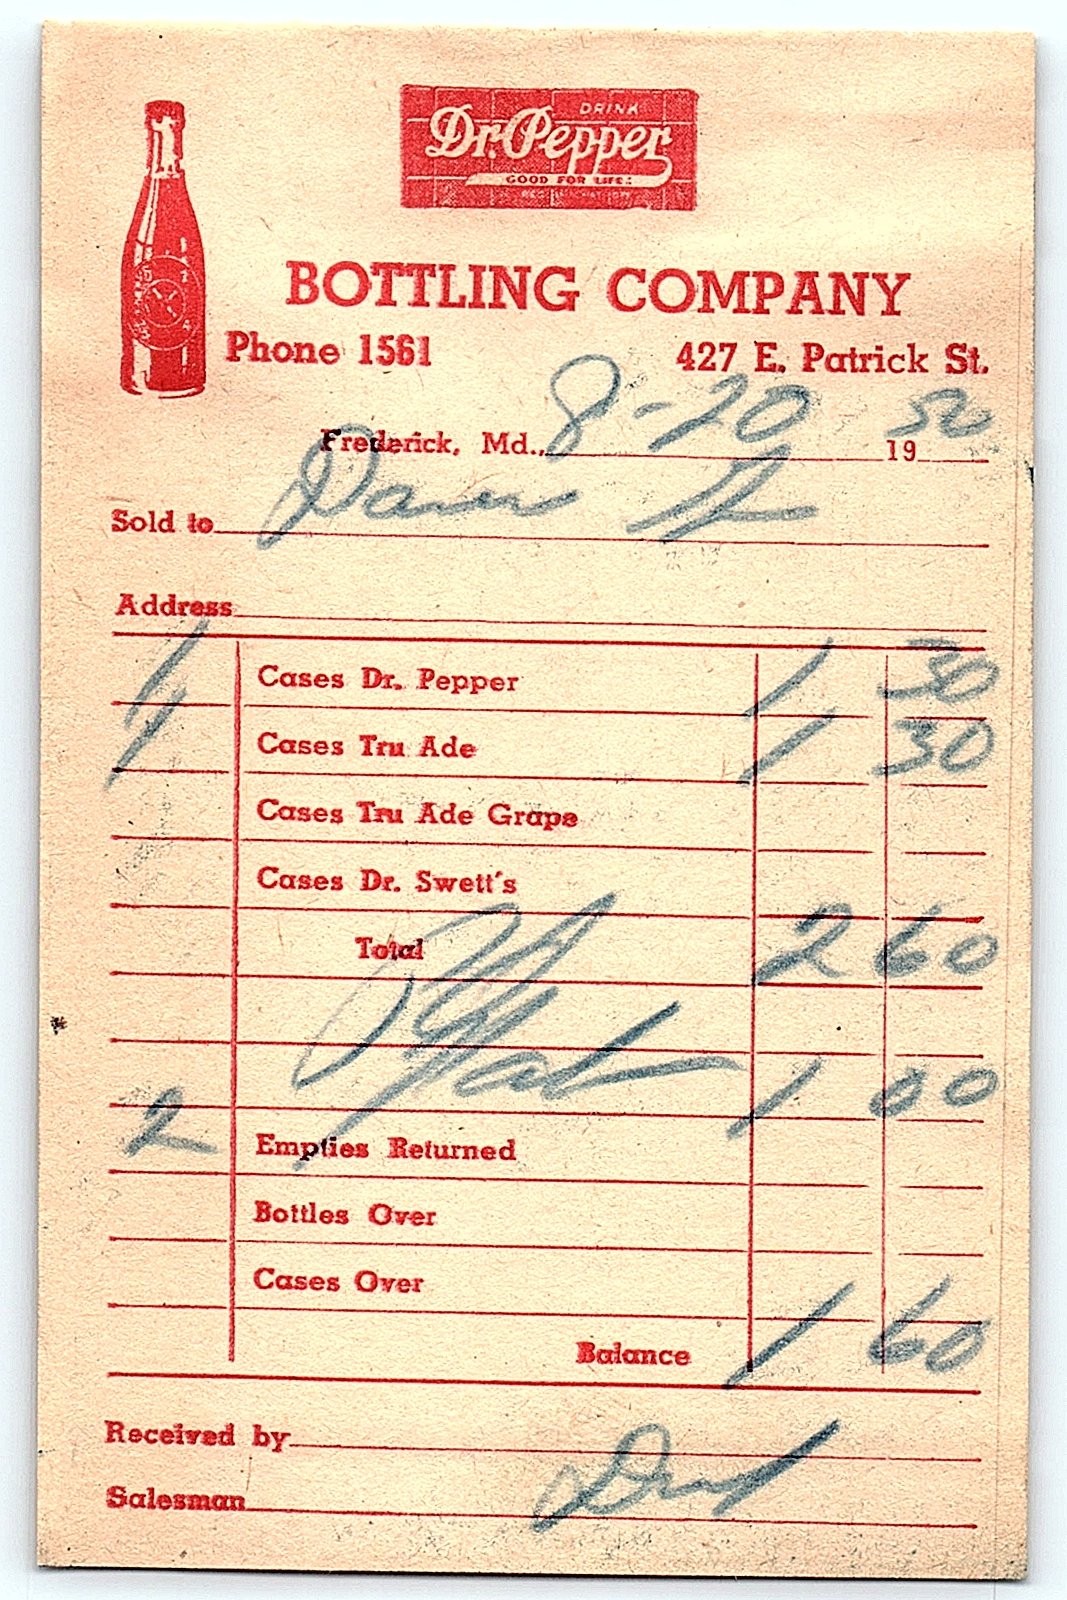 DRINK
Dr. Pepper
GOOD FOR LIFE!
BOTTLING COMPANY
Phone 1561 427 E. Patrick St.
Frederick, Md., 8-20 1950
Sold to
Address
1 Cases Dr. Pepper 1 30
1 Cases Tru Ade 1 30
Cases Tru Ade Grape
Cases Dr. Swett's
Total 2 60
1 00
2 Empties Returned
Bottles Over
Cases Over
Balance 1 60
Received by
Salesman